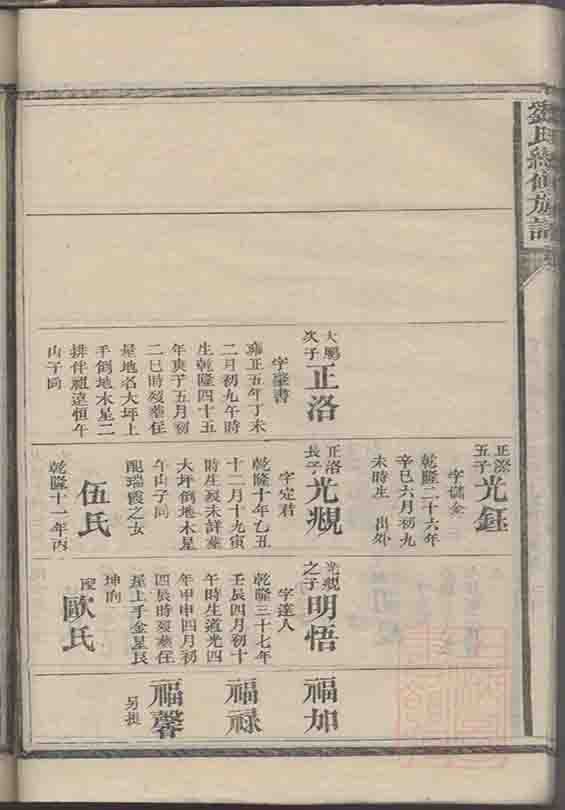 劉氏續修族譜
大鵬
次子
正洛
字
書
雍正五年丁未
二月初九午時
生乾隆四十五
年庚子五月初
二巳時歿葬在
屋地名大坪上
手倒地木星二
排伴祖遠恒午
山子向
五子
光鈺
字儲金
乾隆二十六年
辛巳六月初九
未時生 出外
正洛
長子
光覬
字定君
乾隆十年乙丑
十二月十九寅
時生歿未詳葬
大坪倒地木星
午山子向
配瑞霞之女
伍氏
乾隆十一年丙
光覬
之子
明悟
字達人
乾隆三十七年
壬辰四月初十
午時生道光四
年甲申四月初
四辰時歿葬在
屋上手金星艮
坤向
配
歐氏
福加
福禄
福馨
另提